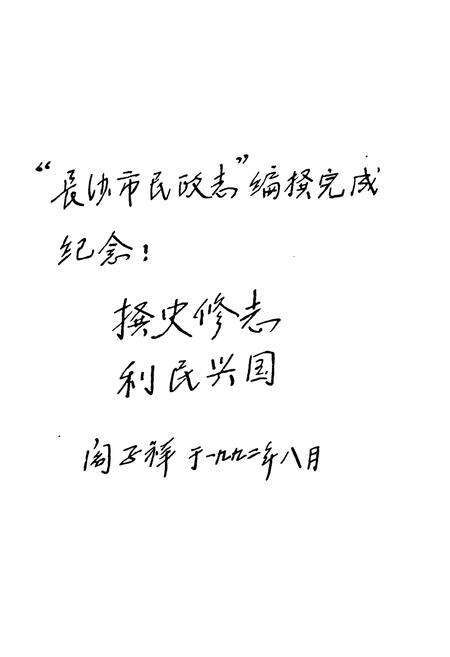 “長沙市民政志”编撰完成
纪念！
撰史修志
利民兴国
阎子祥 于一九九二年八月